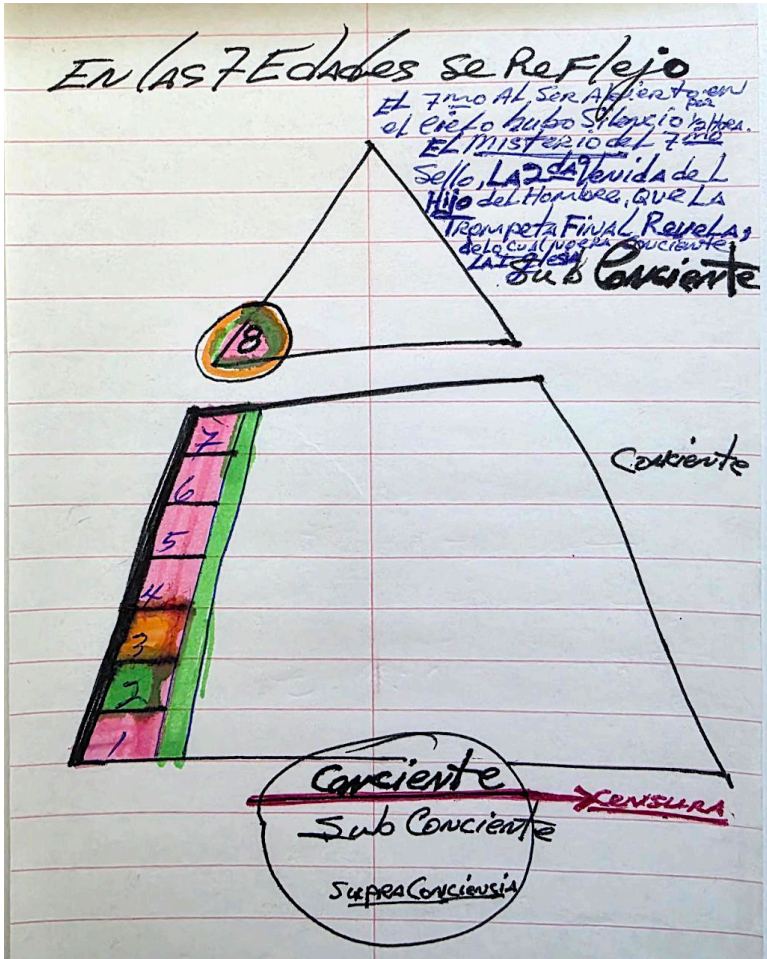 En las 7 Edades se Reflejo
El 7mo Al Ser Abierto en
el cielo hubo Silencio por ½ Hora.
El Misterio del 7mo
Sello, LA 2da Venida del
Hijo del Hombre, QUE LA
Trompeta Final Revela,
de lo cual no era conciente
LA Iglesia
Sub Conciente
8
Conciente
7
6
5
4
3
2
1
Conciente
CENSURA
Sub Conciente
SupraConciensia